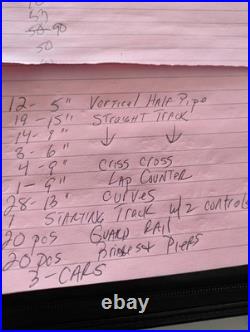 50
50-90
50
12 - 5" Vertical Half Pipe
19 - 15" Straight Track
14 - 9" ↓ ↓
8 - 6"
4 - 9" Criss Cross
1 - 9" Lap Counter
28 - 13" Curves
Starting Track w/2 controls
20 pcs Guard Rail
20 pcs Bridges & Piers
3 - Cars